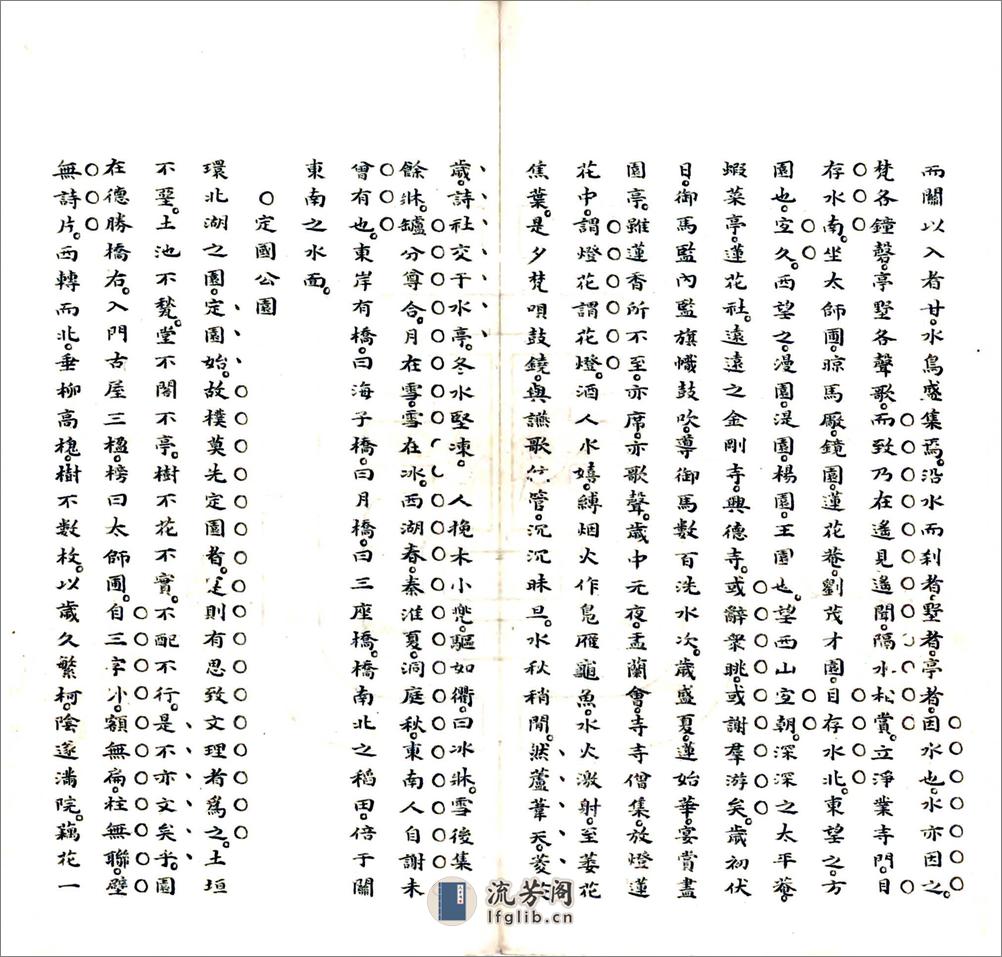 而關以入者甘。水鳥盛集焉。沿水而刹者墅者亭者。因水也。水亦因之。
梵各鐘磬。亭墅各聲歌。而致乃在遙見遙聞。隔水松賞。立淨業寺門。目
存水南。坐太師圃。晾馬厰。鏡園。蓮花菴。劉茂才園。目存水北。東望之。方
園也。宜久。西望之。漫園。湜園。楊園。王園也。望西山宜朝。深深之太平菴。
蝦菜亭。蓮花社。遠遠之金剛寺。興德寺。或辭衆眺。或謝羣游矣。歲初伏
日。御馬監內監旗幟鼓吹。導御馬數百洗水次。歲盛夏。蓮始華。宴賞盡
園亭。雖蓮香所不至。亦席。亦歌聲。歲中元夜。盂蘭會。寺寺僧集。放燈蓮
花中。謂燈花。謂花燈。酒人水嬉。縛烟火作鳧雁龜魚。水火激射。至萎花
焦葉。是夕梵唄鼓鐃。與讌歌管。沉沉昧旦。水秋稍閒。然蘆葦天。菱
歲。詩社交于水亭。冬水堅凍。人挽木小兜。驅如衢。曰冰牀。雪後集
餘牀。罏分尊合。月在雪。雪在冰。西湖春。秦淮夏。洞庭秋。東南人自謝未
曾有也。東岸有橋。曰海子橋。曰月橋。曰三座橋。橋南北之稻田。倍于關
東南之水面。
○定國公園
環北湖之園。定園始。故樸莫先定園者。是則有思致文理者爲之。土垣
不堊。土池不甃。堂不閣不亭。樹不花不實。不配不行。是不亦文矣乎。園
在德勝橋右。入門古屋三楹。榜曰太師圃。自三字小額無扁。柱無聯。壁
無詩片。西轉而北。垂柳高槐。樹不數枚。以歲久繁柯。陰遂滿院。藕花一
流芳阁
lfglib.cn